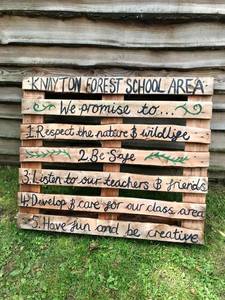 · KNAYTON FOREST SCHOOL AREA ·
We promise to...
1. Respect the nature & wildlife
2. Be Safe
3. Listen to our teachers & friends
4. Develop & care for our class area
5. Have fun and be creative